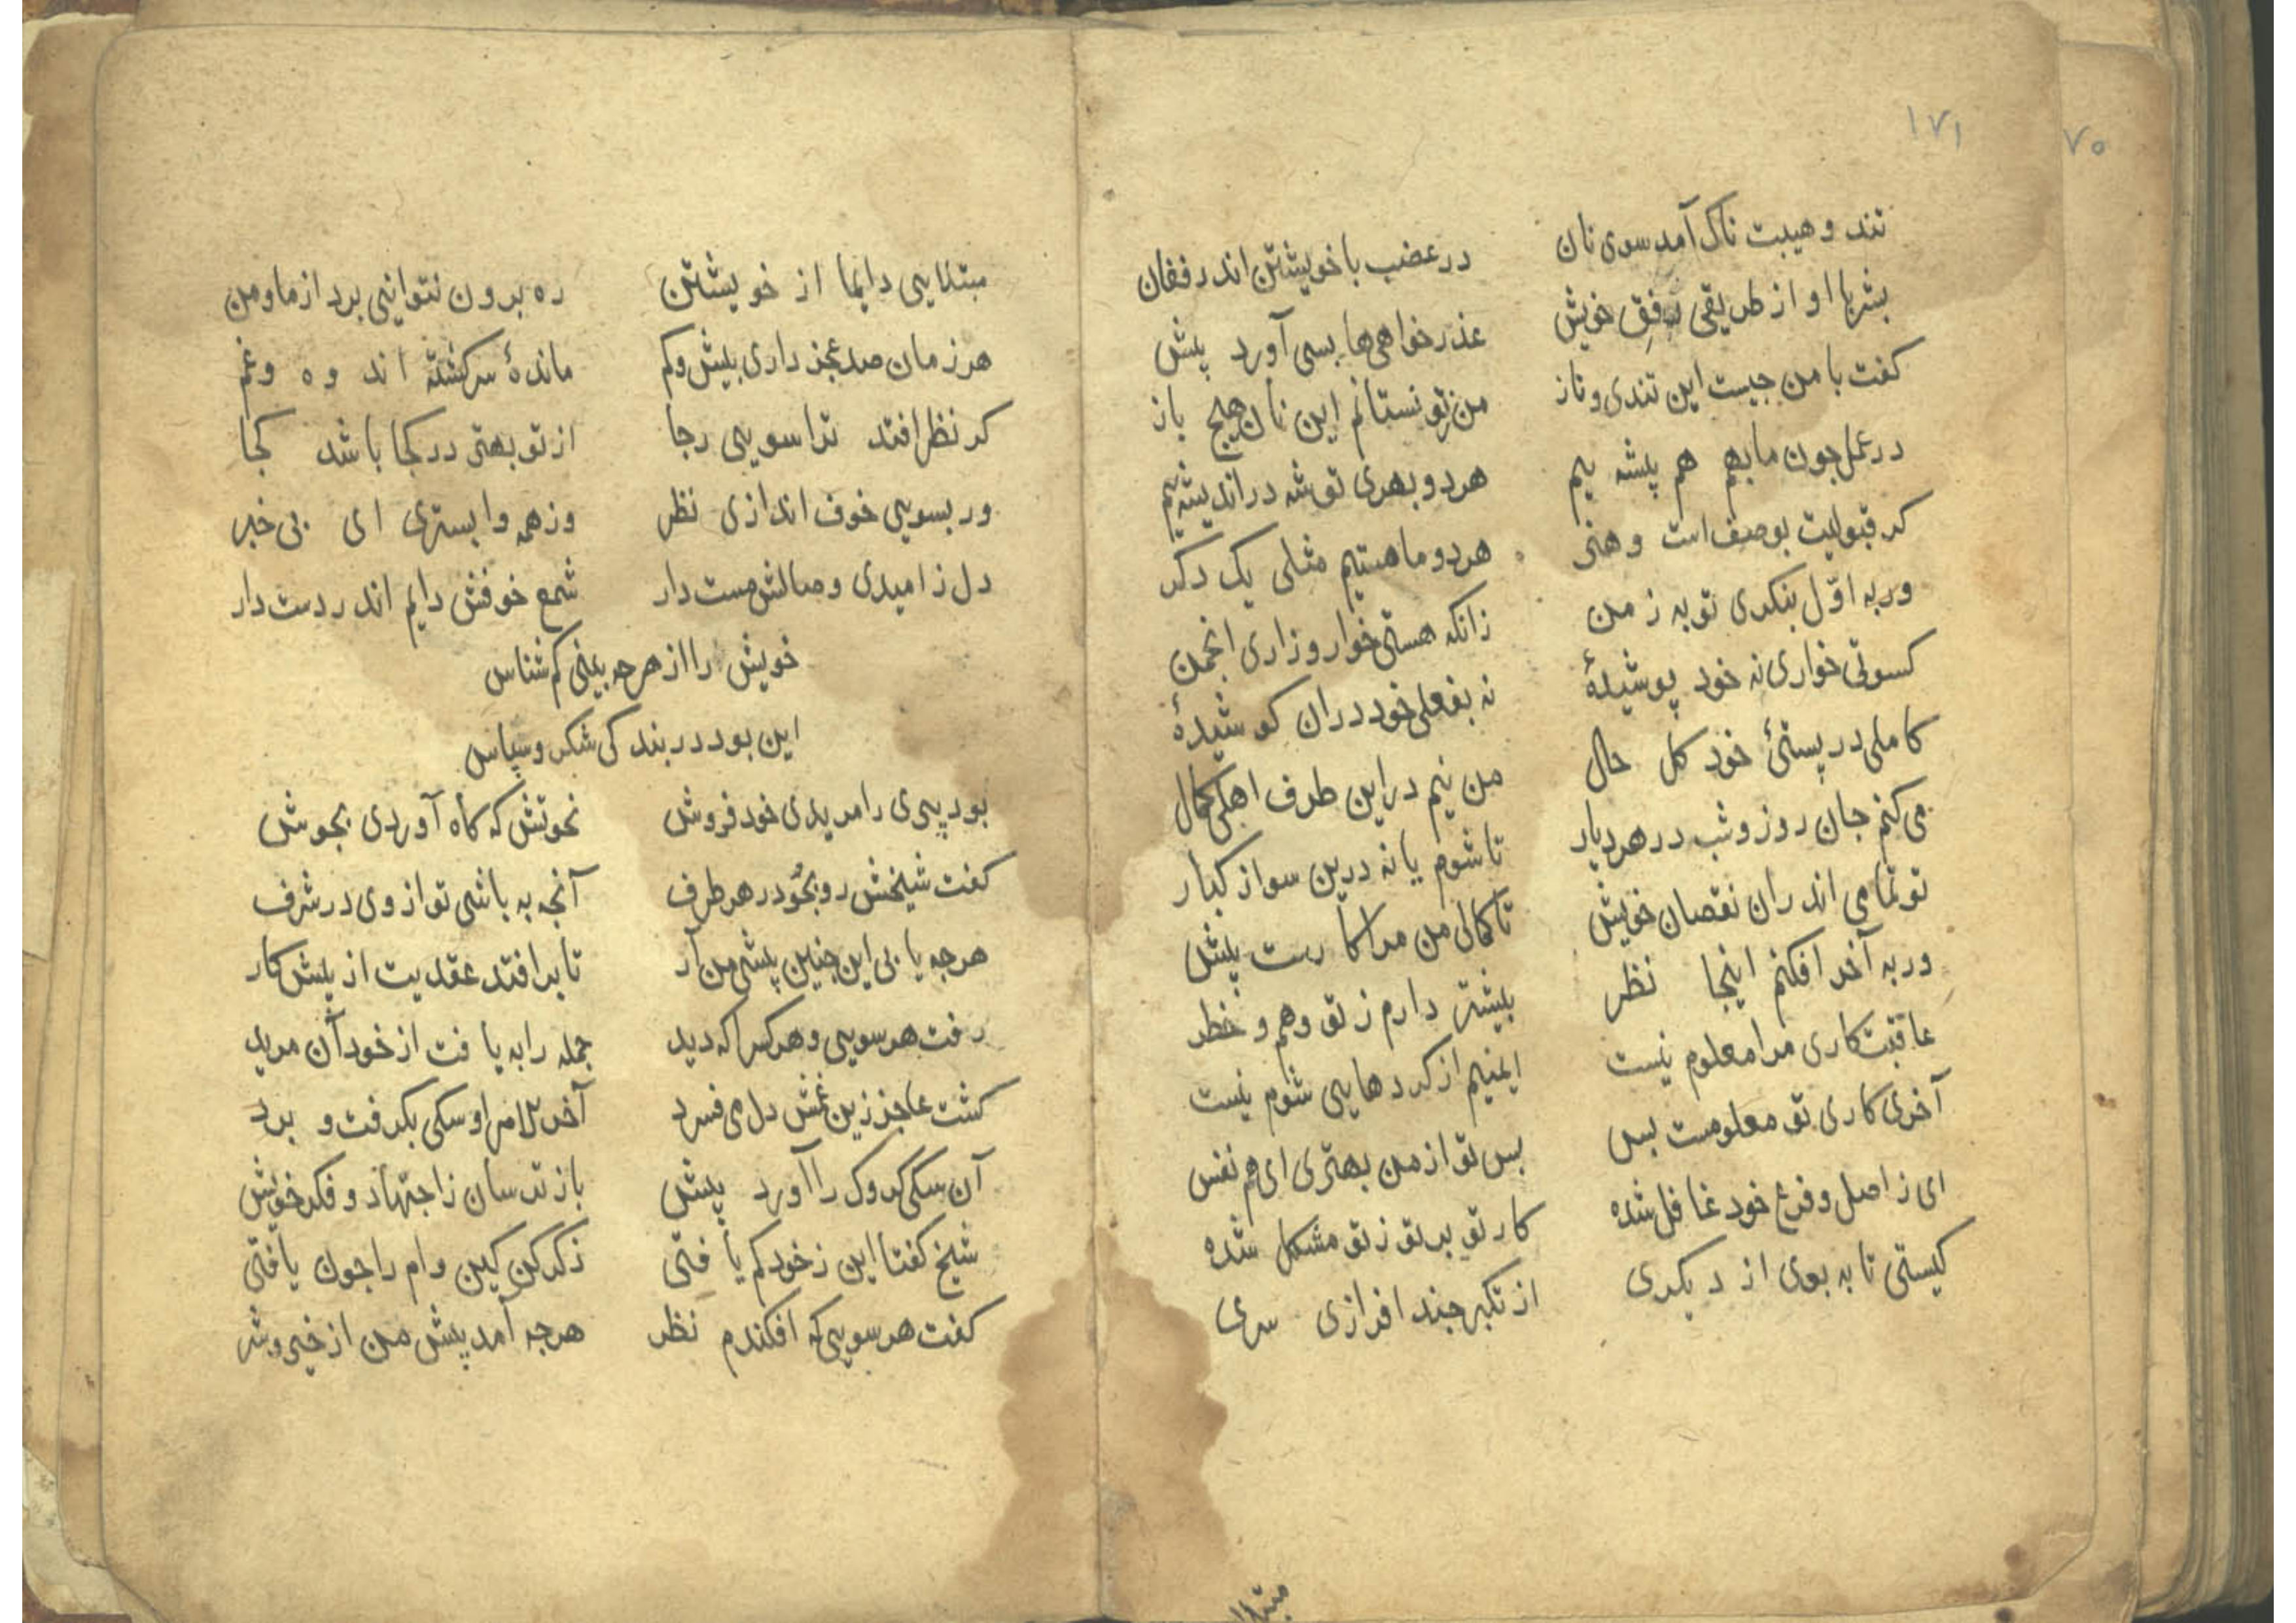 ۱۷۱
۷۰
تند و هیبت ناک آمد سوی نان در غضب با خویشتن اندر فغان
بشر با او از طریقی رفق خویش عذر خواهی‌ها بسی آورد پیش
کفت با من جیست این تندی و ناز من ز تو نستانم این نان هیچ باز
در عمل جون ما بهم هم پیشه یم هر دو بهری توشه در اندیشه یم
کر قبولیت بوصف است و هنر هر دو ما هستیم مثلی یک دکر
ور به اوّل بنکری تو به ز من زانکه هستی خوار و زاری انجمن
کسوتی خواری نه خود پوشیدهٔ نه بفعلی خود دران کوشیدهٔ
کاملی در پستیٔ خود کل حال من نیم در این طرف اهلی کمال
می کنم جان روز و شب در هر دیار تا شوم یا نه درین سو از کبار
تو تمامی اندران نقصان خویش تا کمالی من مرا کارست پیش
ور به آخر افکنم اینجا نظر بیشتر دارم ز تو وهم و خطر
عاقبت کاری مرا معلوم نیست ایمنیم از کردهایی شوم نیست
آخری کاری تو معلومست بس بس تو از من بهتری ای هم نفس
ای ز اصل و فرع خود غافل شده کار تو بر تو ز تو مشکل شده
کیستی تا به بوی از دیکری از تکبر جند افرازی سری
مبتلا
مبتلایی دایما از خویشتن ره برون نتوانی برد از ما و من
هر زمان صد عجز داری بیش و کم ماندهٔ سرکشته اندوه و غم
کر نظر افتد ترا سویی رجا از تو بهتر در کجا باشد کجا
ور بسویی خوف اندازی نظر وز همه وابستری ای بی خبر
دل ز امیدی وصالش مست دار شمع خوفش دایم اندر دست دار
خویش را از هرجه بینی کم شناس
این بود در بندکی شکر و سپاس
بود پیری را مریدی خود فروش نخوتش که کاه آوردی بجوش
کفت شیخش رو بجُو در هر طرف آنجه به باشی تو از وی در شرف
هرجه یابی این جنین پیشی من آر تا برافتد عقدیت از پیش کار
رفت هر سویی و هر کس را که دید جمله را به یافت از خود آن مرید
کشت عاجز زین غمش دل می فسرد آخر الامر او سکی بکرفت و برد
آن سکی کروک را آورد پیش باز ترسان ز اجتهاد و فکر خویش
شیخ کفتا این ز خود کم یافتی ذکر کن کین وام را جون یافتی
کفت هر سویی که افکندم نظر هرجه آمد پیش من از خیر و شر